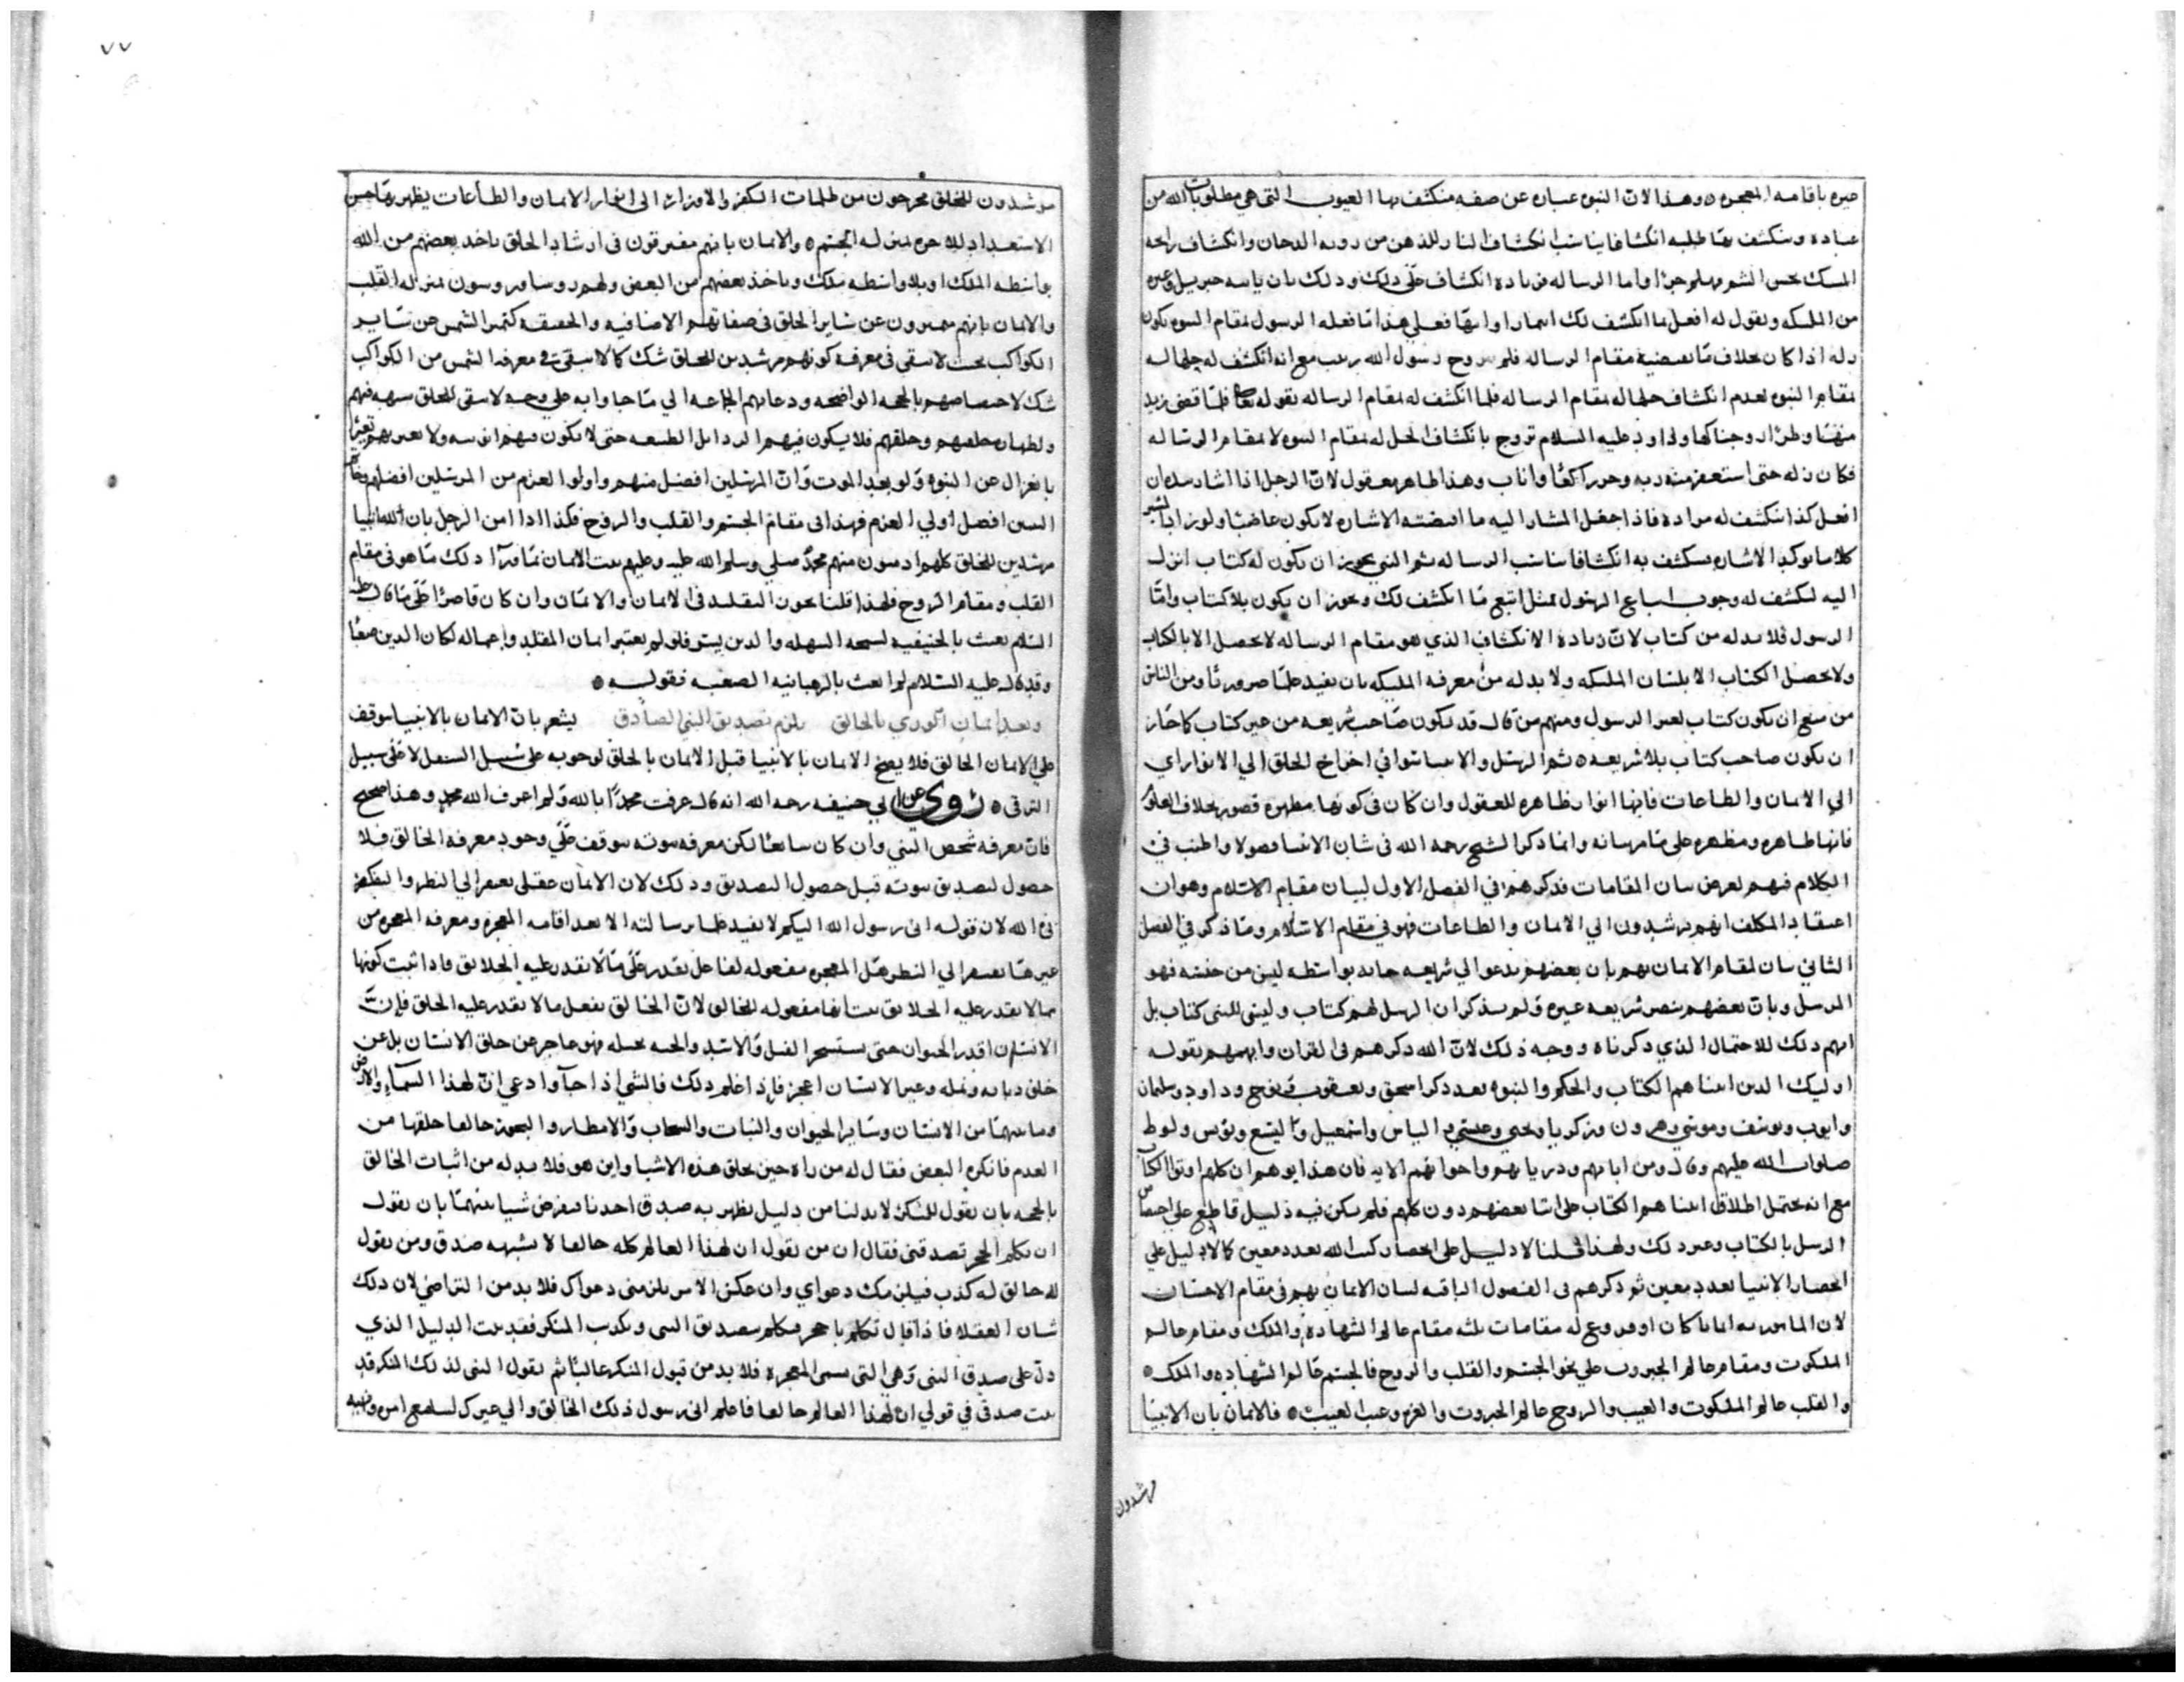 باقامه المعجزه وهذا لان النبوه عباره عن صفه منكشف بها الغيوب التي هي مطلوبات الله من
عباده وينكشف بها طلبه انكشافا يناسب انكشاف النار للذهن من رويه الدخان وانكشاف رايحه
المسك بحس الشم وهلم جرا واما الرساله فزيادة انكشاف على ذلك وذلك بان ياتيه جبريل وغيره
من الملئكه ويقول له افعل بما انكشف لك فعله الرسول بمقام النبوه يكون
زله اذا كان بخلاف ما مقام الرساله فلم رسول الله زينب مع انه انكشف له حلها له
بمقام النبوه لعدم انكشاف حلها له بمقام الرساله فلما انكشف له بمقام الرساله بقوله تعالى فلما قضى زيد
منها وطرا زوجناكها وداود عليه السلام تزوج بانكشاف الحل له بمقام النبوه لا بمقام الرساله
فكان زله حتى استغفر ربه وخر راكعا واناب وهذا ظاهر معقول لان الرجل اذا اشار ان
افعل كذا ينكشف له مراده فاذا جعل المشار اليه ما اقتضته الاشاره لا يكون عاصيا ولو زاد
كلاما يوكد الاشاره ينكشف به انكشافا يناسب الرساله ثم النبي يجوز ان يكون له كتاب انزل
اليه لينكشف له وجوب اتباع الرسول بمثل اتبع ما انكشف لك ويجوز ان يكون بلا كتاب واما
الرسول فلا بد له من كتاب لان زيادة الانكشاف الذي هو مقام الرساله لا يحصل الا بالكتاب
ولا يحصل الكتاب الا بلسان الملئكه ولا بد له من معرفه الملئكه بان يفيد علما ضروريا ومن الناس
من منع ان يكون كتاب لغير الرسول ومنهم من قال قد يكون صاحب شريعه من غير كتاب كما جاز
ان يكون صاحب كتاب بلا شريعه ثم الرسل والانبيا في اخراج الخلق الي الانوار اي
الي الايمان والطاعات فانها انوار ظاهره للعقول وان كان في كونها مطهره قصور بخلاف العلوم
فانها طاهره ومطهره على ما مر بيانه وانما ذكر الشيخ رحمه الله في شان الانبيا فصولا واطنب في
الكلام فيهم لغرض بيان المقامات فذكرهم في الفصل الاول لبيان مقام الاسلام وهو ان
اعتقاد المكلف انهم يرشدون الي الايمان والطاعات فهو في مقام الاسلام وما ذكر في الفصل
الثاني بيان لمقام الايمان بهم بان بعضهم يدعو الي شريعه بواسطه ليس من جنسه فهو
المرسل وبان بعضهم ينصر شريعه غيره ولم يذكر ان الرسل لهم كتاب وليس للنبي كتاب بل
ابهم ذلك للاحتمال الذي ذكرناه ووجه ذلك لان الله ذكرهم في القران وابهمهم بقوله
اوليك الذين اتيناهم الكتاب والحكم والنبوه بعد ذكر اسحق ويعقوب ونوح وداود وسليمان
وايوب ويوسف وموسى وهرون وزكريا ويحيى وعيسى والياس واسمعيل واليسع ويونس ولوط
صلوات الله عليهم وقال ومن ابايهم وذرياتهم واخوانهم الايه فان هذا يوهم ان كلهم اوتوا الكتاب
مع انه يحتمل اطلاق اتيناهم الكتاب على بعضهم دون كلهم فلم يكن فيه دليل قاطع على اختصاص
الرسل بالكتاب وغير ذلك ولهذا قلنا لا دليل على انحصار كتب الله بعدد معين كما لا دليل على
انحصار الانبيا بعدد معين ثم ذكرهم في الفصول الباقيه لبيان الايمان بهم في مقام الاحسان
لان المامور به ايمانا كان او فروع له مقامات ثلثه مقام عالم الشهاده والملك ومقام عالم
الملكوت ومقام عالم الجبروت على نحو الجسم والقلب والروح فالجسم عالم الشهاده والملك
والقلب عالم الملكوت والغيب والروح عالم الجبروت والعزه وغيب الغيب فالايمان بان الانبيا
مرشدون
٧٧
مرشدون للخلق مخرجون من ظلمات الكفر والاوزار الى انوار الايمان والطاعات يظهر بها حسن
الاستعداد للاخره بمنزله الجسم والايمان بانهم مفترقون في ارشاد الخلق ياخذ بعضهم من الله
بواسطه الملك او بلا واسطه ملك وياخذ بعضهم من البعض ولهم روسا ومروسون بمنزله القلب
والايمان بانهم مميزون عن ساير الخلق في صفاتهم الاضافيه والحقيقه كتميز الشمس عن ساير
الكواكب بحيث لا يبقى في معرفة كونهم مرشدين للخلق شك كما لا يبقى في معرفه الشمس من الكواكب
شك لاختصاصهم بالحجه الواضحه ودعايهم الجماعه الي ما جاوا به على وجه لا يبقى للخلق شبهه فيهم
ولطهاره خلقهم وخلقهم فلا يكون فيهم الرذايل الطبيعه حتى لا يكون
بانعزال عن النبوه ولو بعد الموت وان المرسلين افضل منهم واولو العزم من المرسلين افضلهم وخاتم
النبيين افضل اولي العزم فهذا في مقام الجسم والقلب والروح فكذا اذا امن الرجل بان لله انبيا
مرشدين للخلق كلهم ادميون منهم محمد صلى وسلم الله عليه وعليهم يثبت الايمان بما ورآ ذلك مما هو في مقام
القلب ومقام الروح فلهذا قلنا بجواز التقليد في الايمان والايمان وان كان قاصرا على ما قال عليه
السلام بعثت بالحنيفيه السمحه السهله والدين يسر فلو لم يعتبر ايمان المقلد واعماله لكان الدين صعبا
وقد قال عليه السلام لم ابعث بالرهبانيه الصعبه فقوله
وبعد ايمان الوري بالخالق يلزم تصديق النبي الصادق يشعر بان الايمان بالانبيا يتوقف
على الايمان الخالق فلا يصح الايمان بالانبيا قبل الايمان بالخالق لوجوبه على سبيل التنزل لا على سبيل
الترقي روي عن ابي حنيفه رحمه الله انه قال عرفت محمدا بالله ولم اعرف الله بمحمد وهذا صحيح
فان معرفه شخص النبي وان كان سابقا لكن معرفه نبوته يتوقف على وجود معرفه الخالق فلا
حصول لتصديق نبوته قبل حصول التصديق وذلك لان الايمان عقلي يفتقر الي النظر والتفكر
في الله لان قوله اني رسول الله اليكم لا يفيد علما برسالته الا بعد اقامه المعجزه ومعرفه المعجزه من
غيرها يفتقر الي النظر هل المعجزه مفعوله لفاعل يقدر على ما لا يقدر عليه الخلايق فاذا ثبت كونها
مما لا يقدر عليه الخلايق ثبت انها مفعوله للخالق لان الخالق يفعل ما لا يقدر عليه الخلق فان
الانسان اقدر الحيوان حتى يستسخر الفيل والاسد والحيه بحيله فهو عاجز عن خلق الانسان بل عن
خلق ذبابه ونمله وغير الانسان اعجز فاذا علم ذلك فالنبي اذا جآ وادعي ان لهذا السمآء والارض
وما بينهما من الانسان وساير الحيوان والنبات والسحاب والامطار والبحور خالقا خلقها من
العدم فانكره البعض فقال له من راه حين يخلق هذه الاشيا واين هو فلا بد له من اثبات الخالق
بالحجه بان يقول للمنكر لا بد لنا من دليل يظهر به صدق احدنا فيعرض شيا بينهما بان يقول
ان يكلم الحجر تصدقني فقال ان من يقول ان لهذا العالم كله خالقا لا يشبهه صدق ومن يقول
لا خالق له كذب فيلزمك دعواي وان عكس الامر يلزمني دعواك فلا بد من التراضي لان ذلك
شان العقلا فاذا قال تكلم يا حجر فيكلم بتصديق النبي وتكذيب المنكر فقد ثبت الدليل الذي
دل على صدق النبي وهي التي يسمى المعجزه فلا بد من قبول المنكر غالبا ثم يقول النبي لذلك المنكر قد
ثبت صدقي في قولي ان لهذا العالم خالقا فاعلم اني رسول ذلك الخالق والي غيرك لتبليغ امره ونهيه